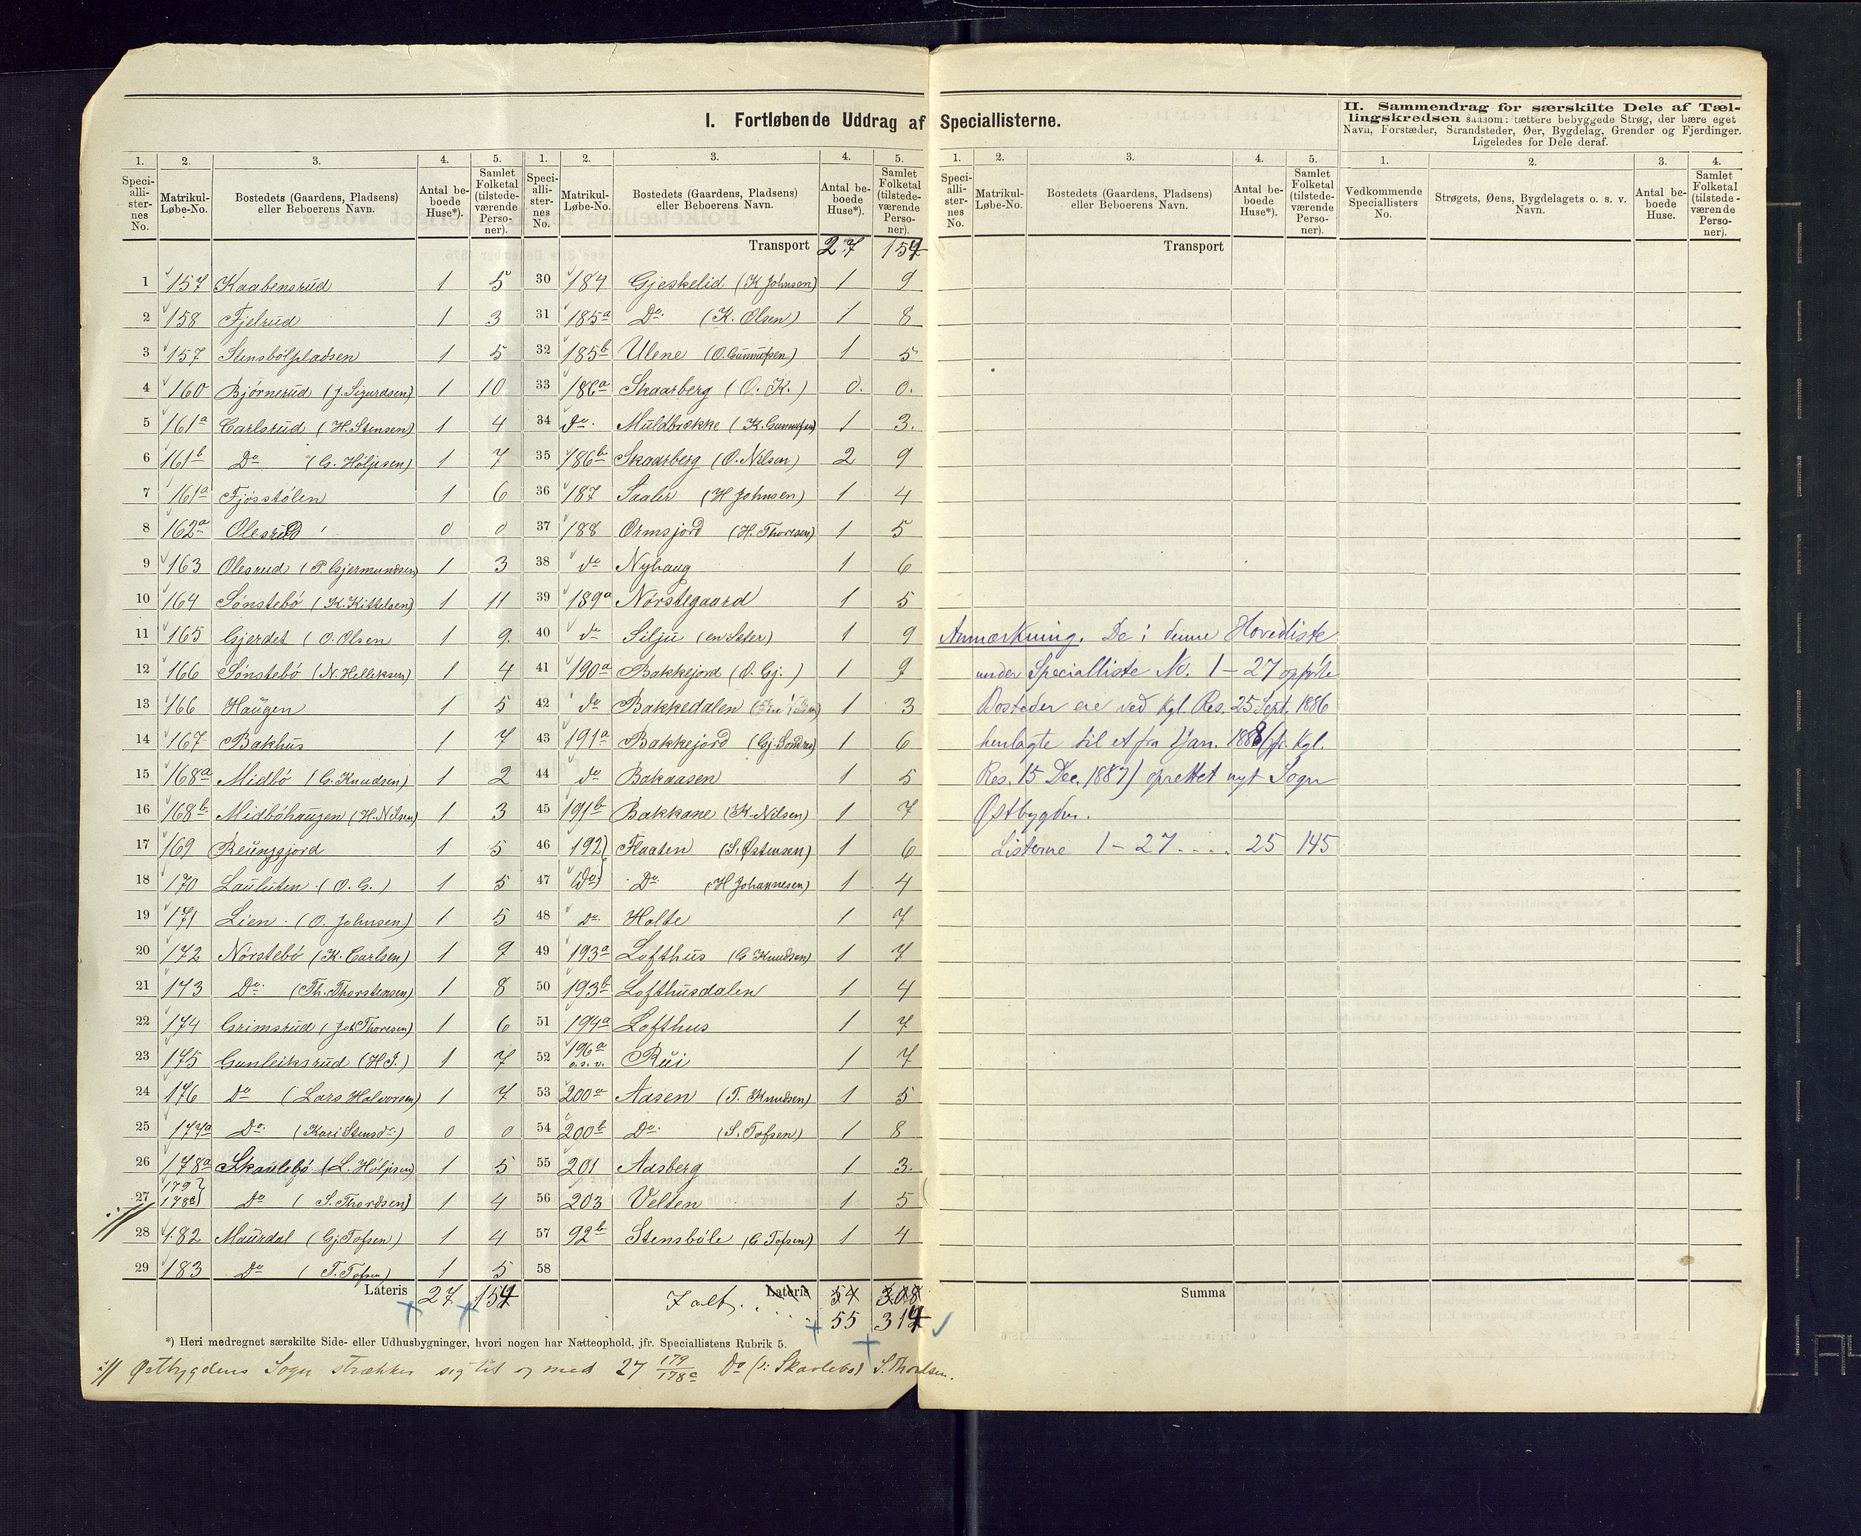 I. Fortløbende Uddrag af Speciallisterne.
II. Sammendrag for særskilte Dele af Tæl-
lingskredsen saasom: tættere bebyggede Strøg, der bære eget
Navn, Forstæder, Strandsteder, Øer, Bygdelag, Grender og Fjerdinger.
Ligeledes for Dele deraf.
1. 2. 3. 4. 5. 1. 2. 3. 4. 5. 1. 2. 3. 4. 5. 1. 2. 3. 4.
Speciallisternes No. Matrikul-Løbe-No. Bostedets (Gaardens, Pladsens) eller Beboerens Navn. Antal beboede Huse*). Samlet Folketal (tilstedeværende Personer).
Speciallisternes No. Matrikul-Løbe-No. Bostedets (Gaardens, Pladsens) eller Beboerens Navn. Antal beboede Huse*). Samlet Folketal (tilstedeværende Personer).
Speciallisternes No. Matrikul-Løbe-No. Bostedets (Gaardens, Pladsens) eller Beboerens Navn. Antal beboede Huse*). Samlet Folketal (tilstedeværende Personer).
Vedkommende Speciallisters No. Strøgets, Øens, Bygdelagets o. s. v. Navn. Antal beboede Huse. Samlet Folketal (tilstedeværende Personer).
1 157 Kaabensrud 1 5
2 158 Fjelrud 1 3
3 157 Stensbölpladsen 1 5
4 160 Bjørnerud (J. Sigurdsen) 1 10
5 161a Carlsrud (H. Stensen) 1 4
6 161b Do (G. Höljesen) 1 7
7 161a Fjösstölen 1 6
8 162a Olesrud 0 0
9 163 Olesrud (P. Gjermundsen) 1 3
10 164 Sönstebö (K. Kittelsen) 1 11
11 165 Gjerdet (O. Olsen 1 9
12 166 Sönstebö (N. Helliksen) 1 4
13 166 Haugen 1 5
14 167 Bakhus 1 7
15 168a Midbö (G. Knudsen) 1 2
16 168b Midböhaugen (H. Nilsen) 1 3
17 169 Reungsjord 1 5
18 170 Lauluten (O. G.) 1 5
19 171 Lien (O. Johnsen) 1 5
20 172 Nörstebö (K. Carlsen) 1 9
21 173 Do (Th. Thorstensen) 1 8
22 174 Grimsrud (Joh Thoresen) 1 6
23 175 Gunleiksrud (H J.) 1 7
24 176 Do (Lars Halvorsen) 1 7
25 177a Do (Kari Stensd:) 0 0
26 178a Skarlebö (L. Höljesen) 1 5
27 179 178c) Do (S. Thordsen) 1 4
28 182 Maurdal (Gj. Tofsen) 1 4
29 183 Do (T. Tofsen) 1 5
Lateris 27 154
Transport 27 154
30 184 Gjeskelid (K Johnsen) 1 9
31 185a Do. (K. Olsen) 1 8
32 185b Ulene (O. Gunnufsen) 1 5
33 186a Skaarberg (O. K.) 0. 0.
34 do. Muldbrække (K. Gunnufsen) 1 3.
35 186b Skaarberg (O. Nilsen) 2 9
36 187 Saaler (H Johnsen) 1 4
37 188 Ormsjord (H. Thoresen) 1 5
38 do Nyhaug 1 6
39 189a Norstegaard 1 5
40 do Silju (en Sæter) 1 9
41 190a Bakkejord (O. Gj.) 1 9
42 do Bakkedalen 1 3
43 191a Bakkejord 1 6
44 do Bakaasen 1 5
45 191b Bakkane (K. Nilsen) 1 7
46 192) Flaaten (S. Østensen) 1 6
47 (do) Do. (H Johannesen) 1 4
48 Do. Holte 1 7
49 193a Lofthus (G Knudsen) 1 7
50 193b Lofthusdalen 1 4
51 194a Lofthus 1 7
52 196a o.s.v. Rui 1 7
53 200a Aasen (T. Knudsen) 1 5
54 200b Do. (S. Tofsen) 1 8
55 201 Aasberg 1 3.
56 203 Velten 1 5
57 92b Stensböle (G Tofsen) 1 4
58
Lateris 54 308
I alt, 55 314
Transport
Anmærkning. De i denne Hovedliste
under Specialliste No. 1-27 opførte
Bosteder ere ved Kgl. Res. 25 Sept. 1886
henlagte til et fra 1 Jan. 1888 (jfr. Kgl.
Res. 15 Dec. 1887) oprettet nyt Sogn
Østbygden.
Listerne 1-27 .... 25 145
Summa
*) Heri medregnet særskilte Side- eller Udhusbygninger, hvori nogen har Natteophold, jfr. Speciallistens Rubrik 5.
Østbygdens Sogn strækker sig til og med 27 179/178c Do (: Skarlebö) S. Thordsen.